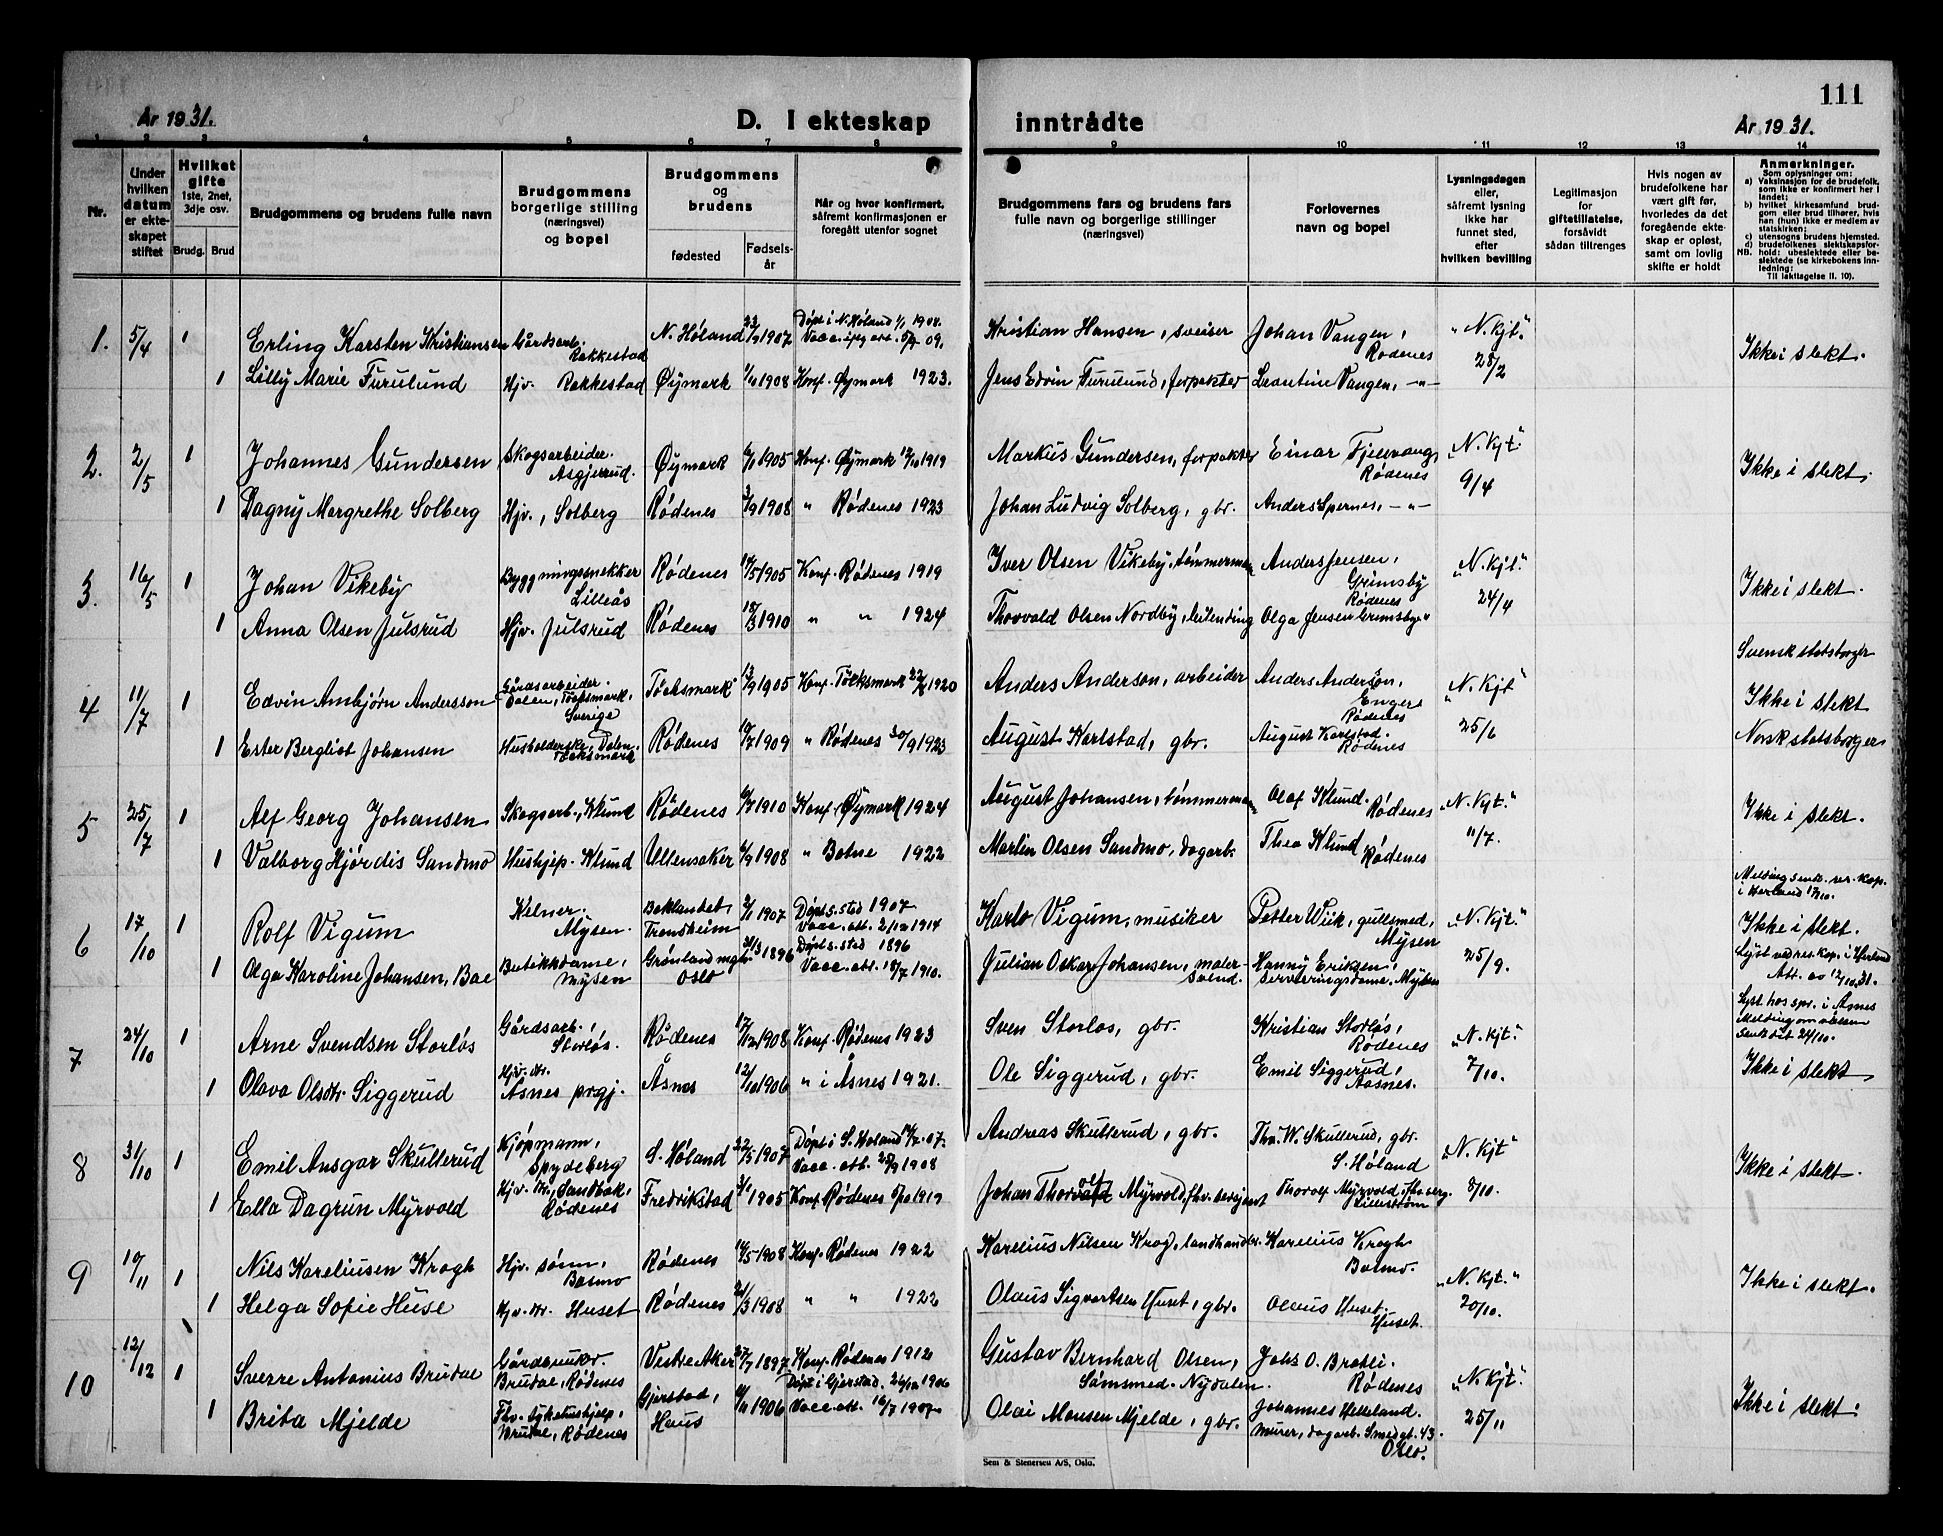 111
År 1931.
D. I ekteskap inntrådte
År 1931.
1 2 3 4 5 6 7 8 9 10 11 12 13 14
Nr.
Under hvilken datum er ekteskapet stiftet
Hvilket gifte
1ste, 2net, 3dje osv.
Brudg. Brud
Brudgommens og brudens fulle navn
Brudgommens borgerlige stilling (næringsvei) og bopel
Brudgommens og brudens
fødested
Fødselsår
Når og hvor konfirmert, såfremt konfirmasjonen er foregått utenfor sognet
Brudgommens fars og brudens fars fulle navn og borgerlige stillinger (næringsvei)
Forlovernes navn og bopel
Lysningsdagen eller, såfremt lysning ikke har funnet sted, efter hvilken bevilling
Legitimasjon for giftetillatelse, forsåvidt sådan tiltrenges
Hvis nogen av brudefolkene har vært gift før, hvorledes da det foregående ekteskap er opløst, samt om lovlig skifte er holdt
Anmerkninger.
Som oplysninger om:
a) Vaksinasjon for de brudefolk, som ikke er konfirmert her i landet.
b) hvilket kirkesamfund brudgom eller brud tilhører, hvis han (hun) ikke er medlem av statskirken:
c) utensogns brudens hjemsted.
d) brudefolkenes slektskapsforhold: ubeslektede eller beslektede (se kirkebokens innledning:
NB. Til iakttagelse II. 10).
1. 5/4 1 Erling Karsten Kristiansen Gårdsarb. Rakkestad N. Høland 1907 Døpt i N. Høland 1/1 1908. Kristian Hansen, sveiser Johan Vangen, Rødenes "N. Kjt." 28/2 Ikke i slekt.
1 Lilly Marie Furulund Hjv. Rakkestad Øymark 1908 Konf. Øymark 1923. Jens Edvin Furulund, forpakter Leontine Vangen, -"-
2. 2/5 1 Johannes Gundersen Skogsarbeider. Asgjerrud. Øymark 1905 Konf. Øymark 1919 Markus Gundersen, forpakter Einar Fjellvang, Rødenes "N. Kjt." 9/4 Ikke i slekt.
1 Dagny Margrethe Solberg Hjv., Solberg Rødenes 3/9 1908 " Rødenes 1923 Johan Ludvig Solberg, gbr. Anders Spernes, -"-
3. 16/5 1 Johan Vikeby Byggningssnekker Lilleås Rødenes 1905 Konf. Rødenes 1919 Iver Olsen Vikeby, tømmermann Anders Jensen, Grimsby Rødenes "N. Kjt." 24/4 Ikke i slekt.
1 Anna Olsen Julsrud Hjv. Julsrud Rødenes 18/3 1910 " " 1924 Thorvald Olsen Nordby, leilending Olga Jensen Grimsby "
4 11/7 1 Edvin Arnbjørn Andersson Gårdsarbeider. Dalen, Töcksmark, Sverige Töcksmark 13/9 1905 Konf. Töcksmark 1920 Anders Anderson, arbeider Anders Anderson, Enger, Rødenes "N. Kjt" 25/6 Svensk statsborger Ikke i slekt
1 Ester Bergliot Johansen Husholderske, Dalen, Töcksmark Rødenes 1909 " Rødenes 30/9 1923 August Karlstad, gbr. August Karlstad. Rødenes Norsk statsborger
5 25/7 1 Alf Georg Johansen Skogsarb., Klund Rødenes 1910 Konf. Øymark 1924 August Johansen, tømmermann Olaf Klund. Rødenes "N. Kjt." 11/7. Ikke i slekt.
1 Valborg Hjørdis Sandmo Hushjelp. Klund Ullensaker 1908 " Botne 1922 Martin Olsen Sandmo, dagarb. Thea Klund Rødenes
6 17/10 1 Rolf Vigum Kelner. Mysen. Baklandet Trondheim 2/1 1907 Døpt s. sted 1907. Vacc. att. 2/12 1914 Karlo Vigum, musiker Petter Wiik, gullsmed, Mysen "N. Kjt." 25/9. Melding sendt res. kap. i Herland 17/10. Ikke i slekt.
1 Olga Karoline Johansen, Boe Butikkdame, Mysen Grønland mgh. Oslo 1896 Døpt s. sted 1896 Vacc. att. 18/7 1910. Julian Oskar Johansen, malersvend. Hanny Eriksen, serveringsdame, Mysen Lyst ved res. kap. i Herland Att. av 12/10.31.
7 24/10 1 Arne Svendsen Storløs Gårdsarb., Storløs. Rødenes 17/12 1908 Konf. Rødenes 1923 Sven Storløs, gbr. Kristian Storløs, Rødenes "N. Kjt." 7/10. Lyst hos spr. i Åsnes Melding om vielsen sendt dit 24/10.
1 Olava Olsdtr. Siggerud Hjv. dtr. Åsnes prgj. Åsnes 12/10 1906 " i Åsnes 1921. Ole Siggerud, gbr. Emil Siggerud, Aasnes. Ikke i slekt
8 31/10 1 Emil Ansgar Skullerud Kjøpmann, Spydeberg S. Høland 22/5 1907 Døpt i S. Høland 07. Vacc. att. 1908 Andreas Skullerud, gbr. Th. W. Skullerud, gbr. S. Høland "N. Kjt" 8/10. Ikke i slekt.
1 Ella Dagrun Myrvold Hjv. dtr., Sandbæk, Rødenes Fredrikstad 1905 Konf. Rødenes 1919 Johan Thorolf Myrvold, fhv. sersjant Thorolf Myrvold, Lillestrøm
9 10/11 1 Nils Kareliusen Krogh Hjv. sønn, Basmo Rødenes 1908 Konf. Rødenes 1922 Karelius Nilsen Krog, landhandler. Karelius Krogh Basmo. "N. Kjt." 20/10. Ikke i slekt.
1 Helga Sofie Huse Hjv. dtr. Huset Rødenes 1908 " " 1922 Olaus Sigvartsen Huset, gbr. Olaus Huset. Huset.
10 12/12 1 Sverre Antonius Brudal Gårdbruker. Brudal, Rødenes Vestre Aker 27/7 1897 Konf. Rødenes 1912 Gustav Bernhard Olsen, Sømsmed. Nydalen. Johs O. Bratli. Rødenes "N. Kjt." 25/11 Ikke i slekt.
1 Brita Mjelde Fhv. sykehushjelp, Brudal, Rødenes Gjerstad, Haus 1906 Døpt i Gjerstad, 26/12 1906 Vacc. att. 16/7 1907 Olai Monsen Mjelde, gbr. Johannes Helleland. murer, dagarb. Smedgt. 43. Oslo.
Sem & Stenersen A/S, Oslo.